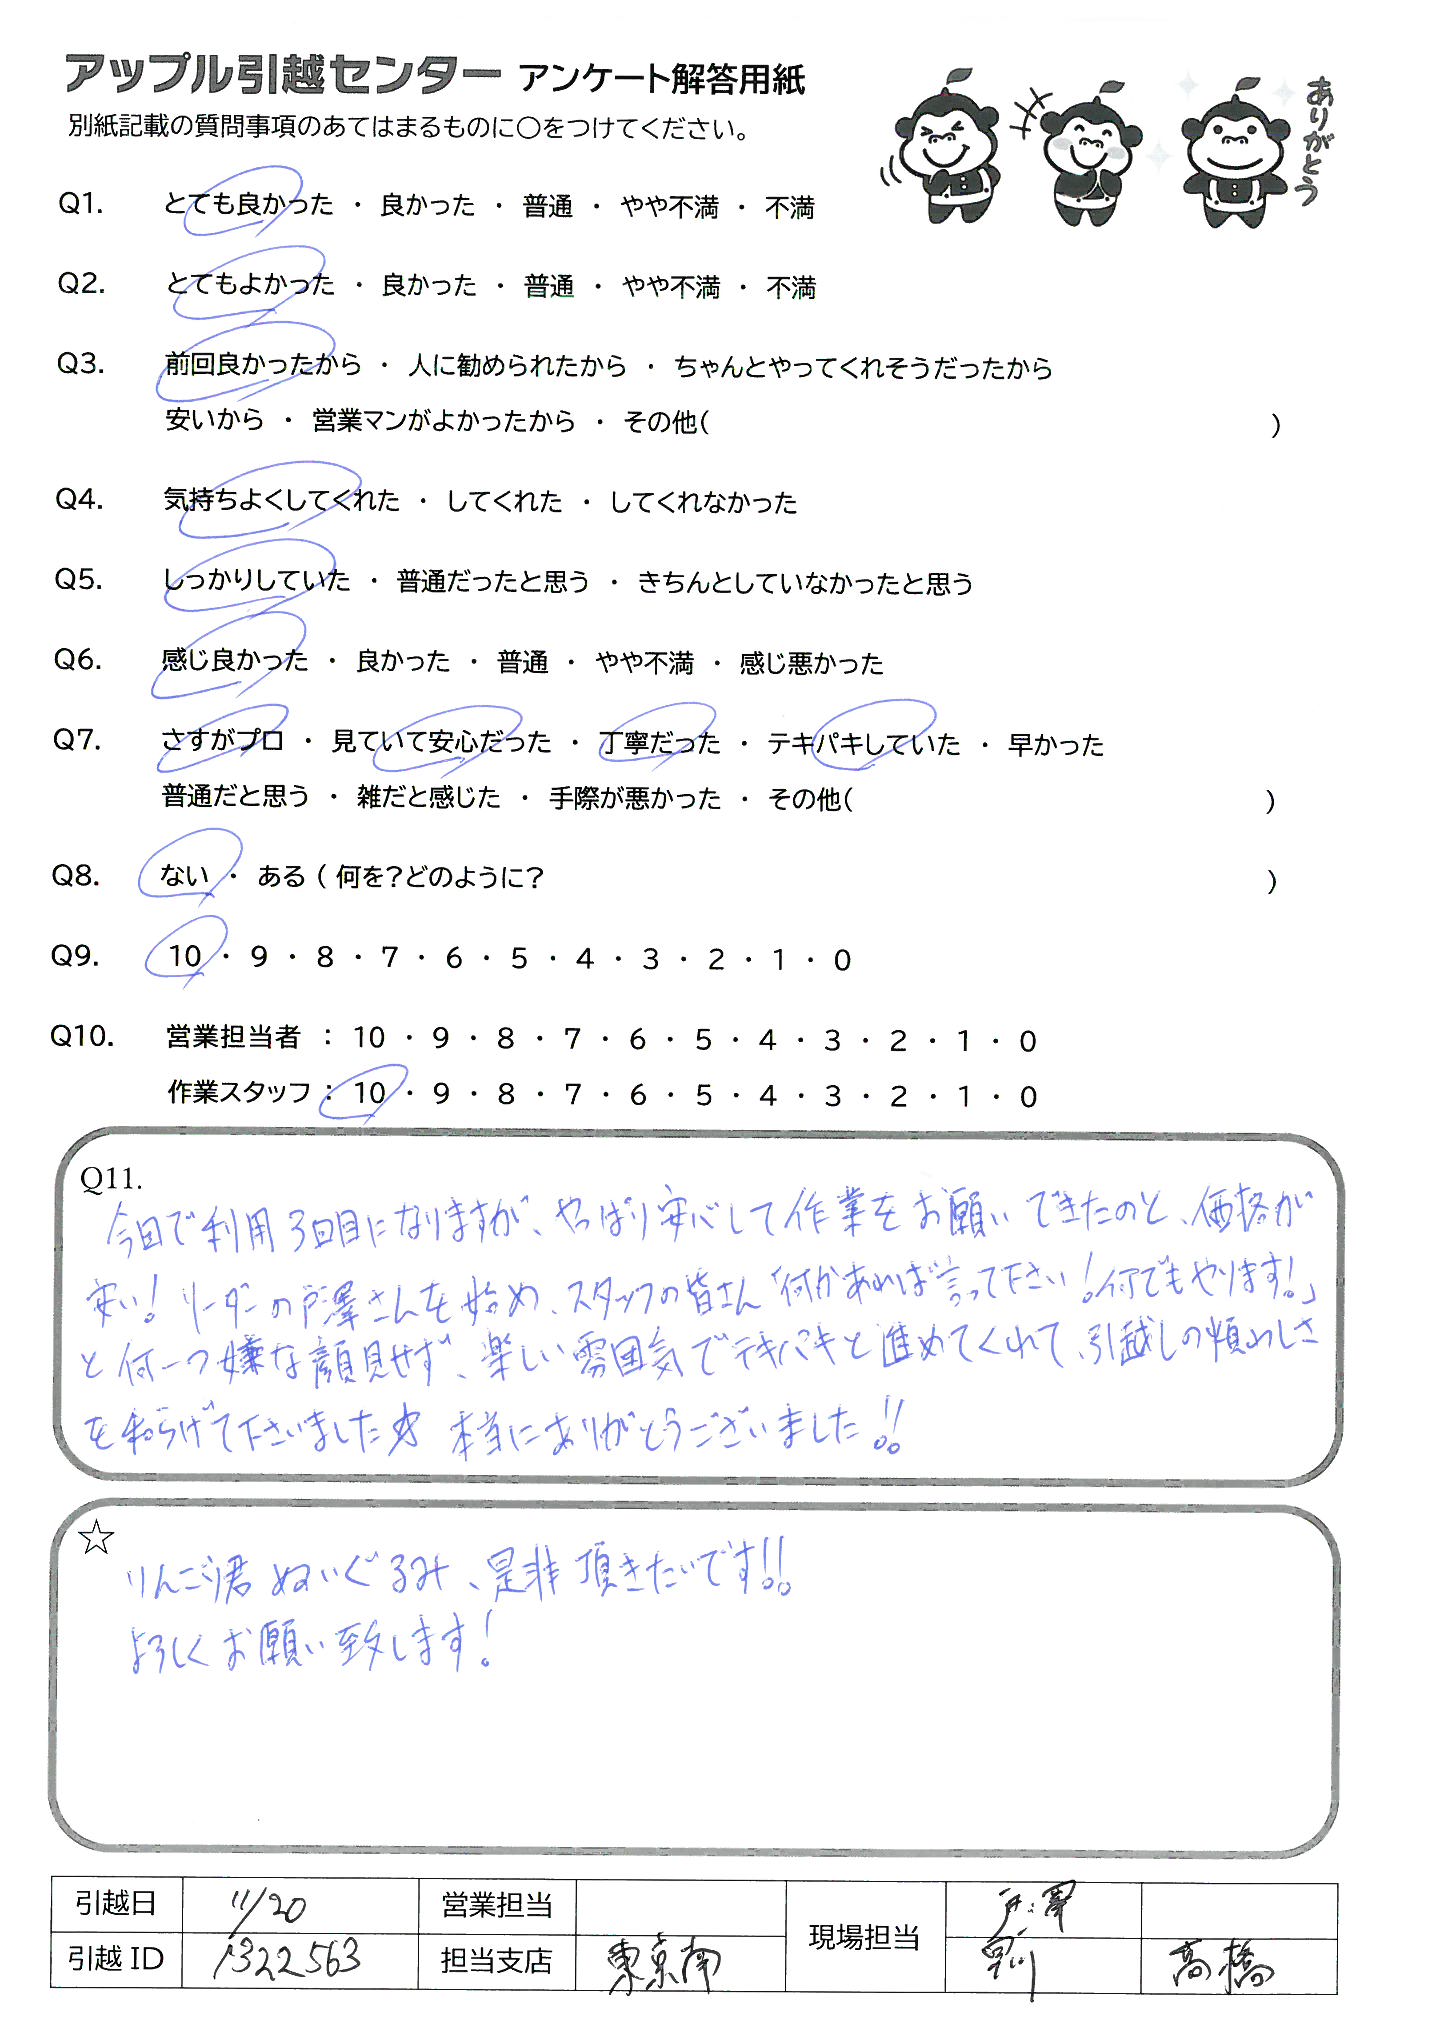 アップル引越センター アンケート解答用紙
別紙記載の質問事項のあてはまるものに○をつけてください。
ありがとう
Q1. とても良かった ・ 良かった ・ 普通 ・ やや不満 ・ 不満
Q2. とてもよかった ・ 良かった ・ 普通 ・ やや不満 ・ 不満
Q3. 前回良かったから ・ 人に勧められたから ・ ちゃんとやってくれそうだったから
安いから ・ 営業マンがよかったから ・ その他( )
Q4. 気持ちよくしてくれた ・ してくれた ・ してくれなかった
Q5. しっかりしていた ・ 普通だったと思う ・ きちんとしていなかったと思う
Q6. 感じ良かった ・ 良かった ・ 普通 ・ やや不満 ・ 感じ悪かった
Q7. さすがプロ ・ 見ていて安心だった ・ 丁寧だった ・ テキパキしていた ・ 早かった
普通だと思う ・ 雑だと感じた ・ 手際が悪かった ・ その他( )
Q8. ない ・ ある ( 何を?どのように? )
Q9. 10 ・ 9 ・ 8 ・ 7 ・ 6 ・ 5 ・ 4 ・ 3 ・ 2 ・ 1 ・ 0
Q10. 営業担当者 : 10 ・ 9 ・ 8 ・ 7 ・ 6 ・ 5 ・ 4 ・ 3 ・ 2 ・ 1 ・ 0
作業スタッフ : 10 ・ 9 ・ 8 ・ 7 ・ 6 ・ 5 ・ 4 ・ 3 ・ 2 ・ 1 ・ 0
Q11.
今回で利用3回目になりますが、やっぱり安心して作業をお願いできたのと、価格が
安い! リーダーの戸澤さんを始め、スタッフの皆さん「何かあれば言って下さい!何でもやります!」
と何一つ嫌な顔見せず、楽しい雰囲気でテキパキと進めてくれて、引越しの煩わしさ
を和らげて下さいました☆ 本当にありがとうございました!!
☆
りんごり君 ぬいぐるみ、是非頂きたいです!!
よろしくお願い致します!
引越日 11/20 営業担当 現場担当 戸澤
引越ID 1322563 担当支店 東京南 高橋